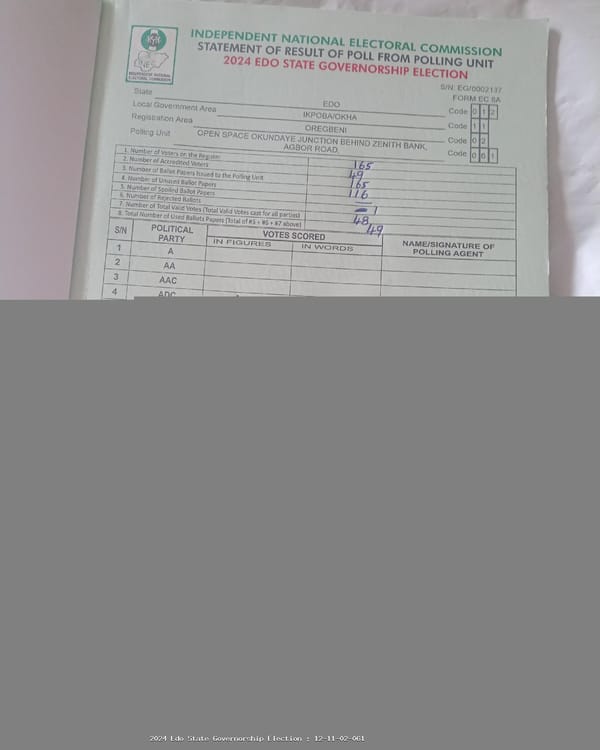 INDEPENDENT NATIONAL ELECTORAL COMMISSION
STATEMENT OF RESULT OF POLL FROM POLLING UNIT
2024 EDO STATE GOVERNORSHIP ELECTION
INDEPENDENT NATIONAL ELECTORAL COMMISSION
S/N: EG/0002137
FORM EC 8A
State EDO Code 0 1 2
Local Government Area IKPOBA/OKHA Code 1 1
Registration Area OREGBENI Code 0 2
Polling Unit OPEN SPACE OKUNDAYE JUNCTION BEHIND ZENITH BANK, AGBOR ROAD, Code 0 6 1
1. Number of Voters on the Register 165
2. Number of Accredited Voters 49
3. Number of Ballot Papers Issued to the Polling Unit 165
4. Number of Unused Ballot Papers 116
5. Number of Spoiled Ballot Papers —
6. Number of Rejected Ballots 1
7. Number of Total Valid Votes (Total Valid Votes cast for all parties) 48
8. Total Number of Used Ballots Papers (Total of #5 + #6 + #7 above) 49
S/N POLITICAL PARTY VOTES SCORED NAME/SIGNATURE OF POLLING AGENT
IN FIGURES IN WORDS
1 A
2 AA
3 AAC
4 ADC
2024 Edo State Governorship Election : 12-11-02-061